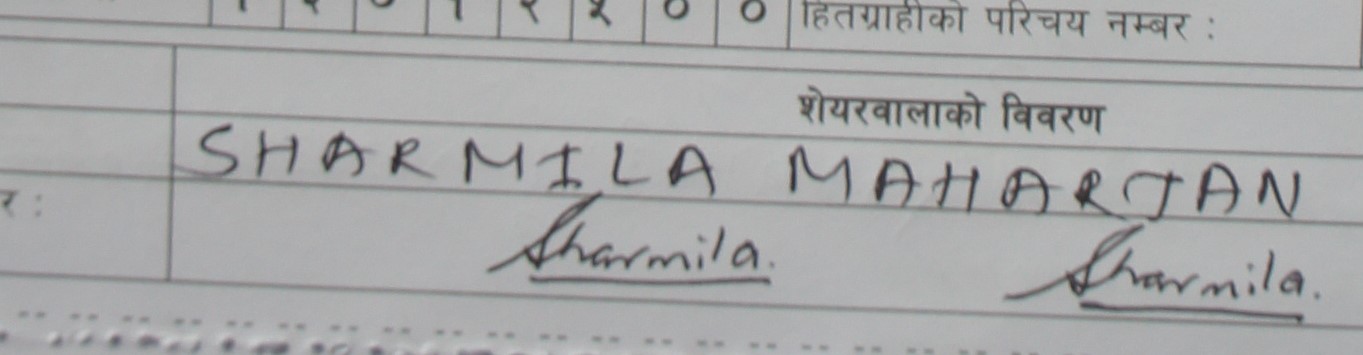 हितग्राहीको परिचय नम्बर :
शेयरवालाको विवरण
SHARMILA MAHARJAN
र :
Sharmila. Sharmila.